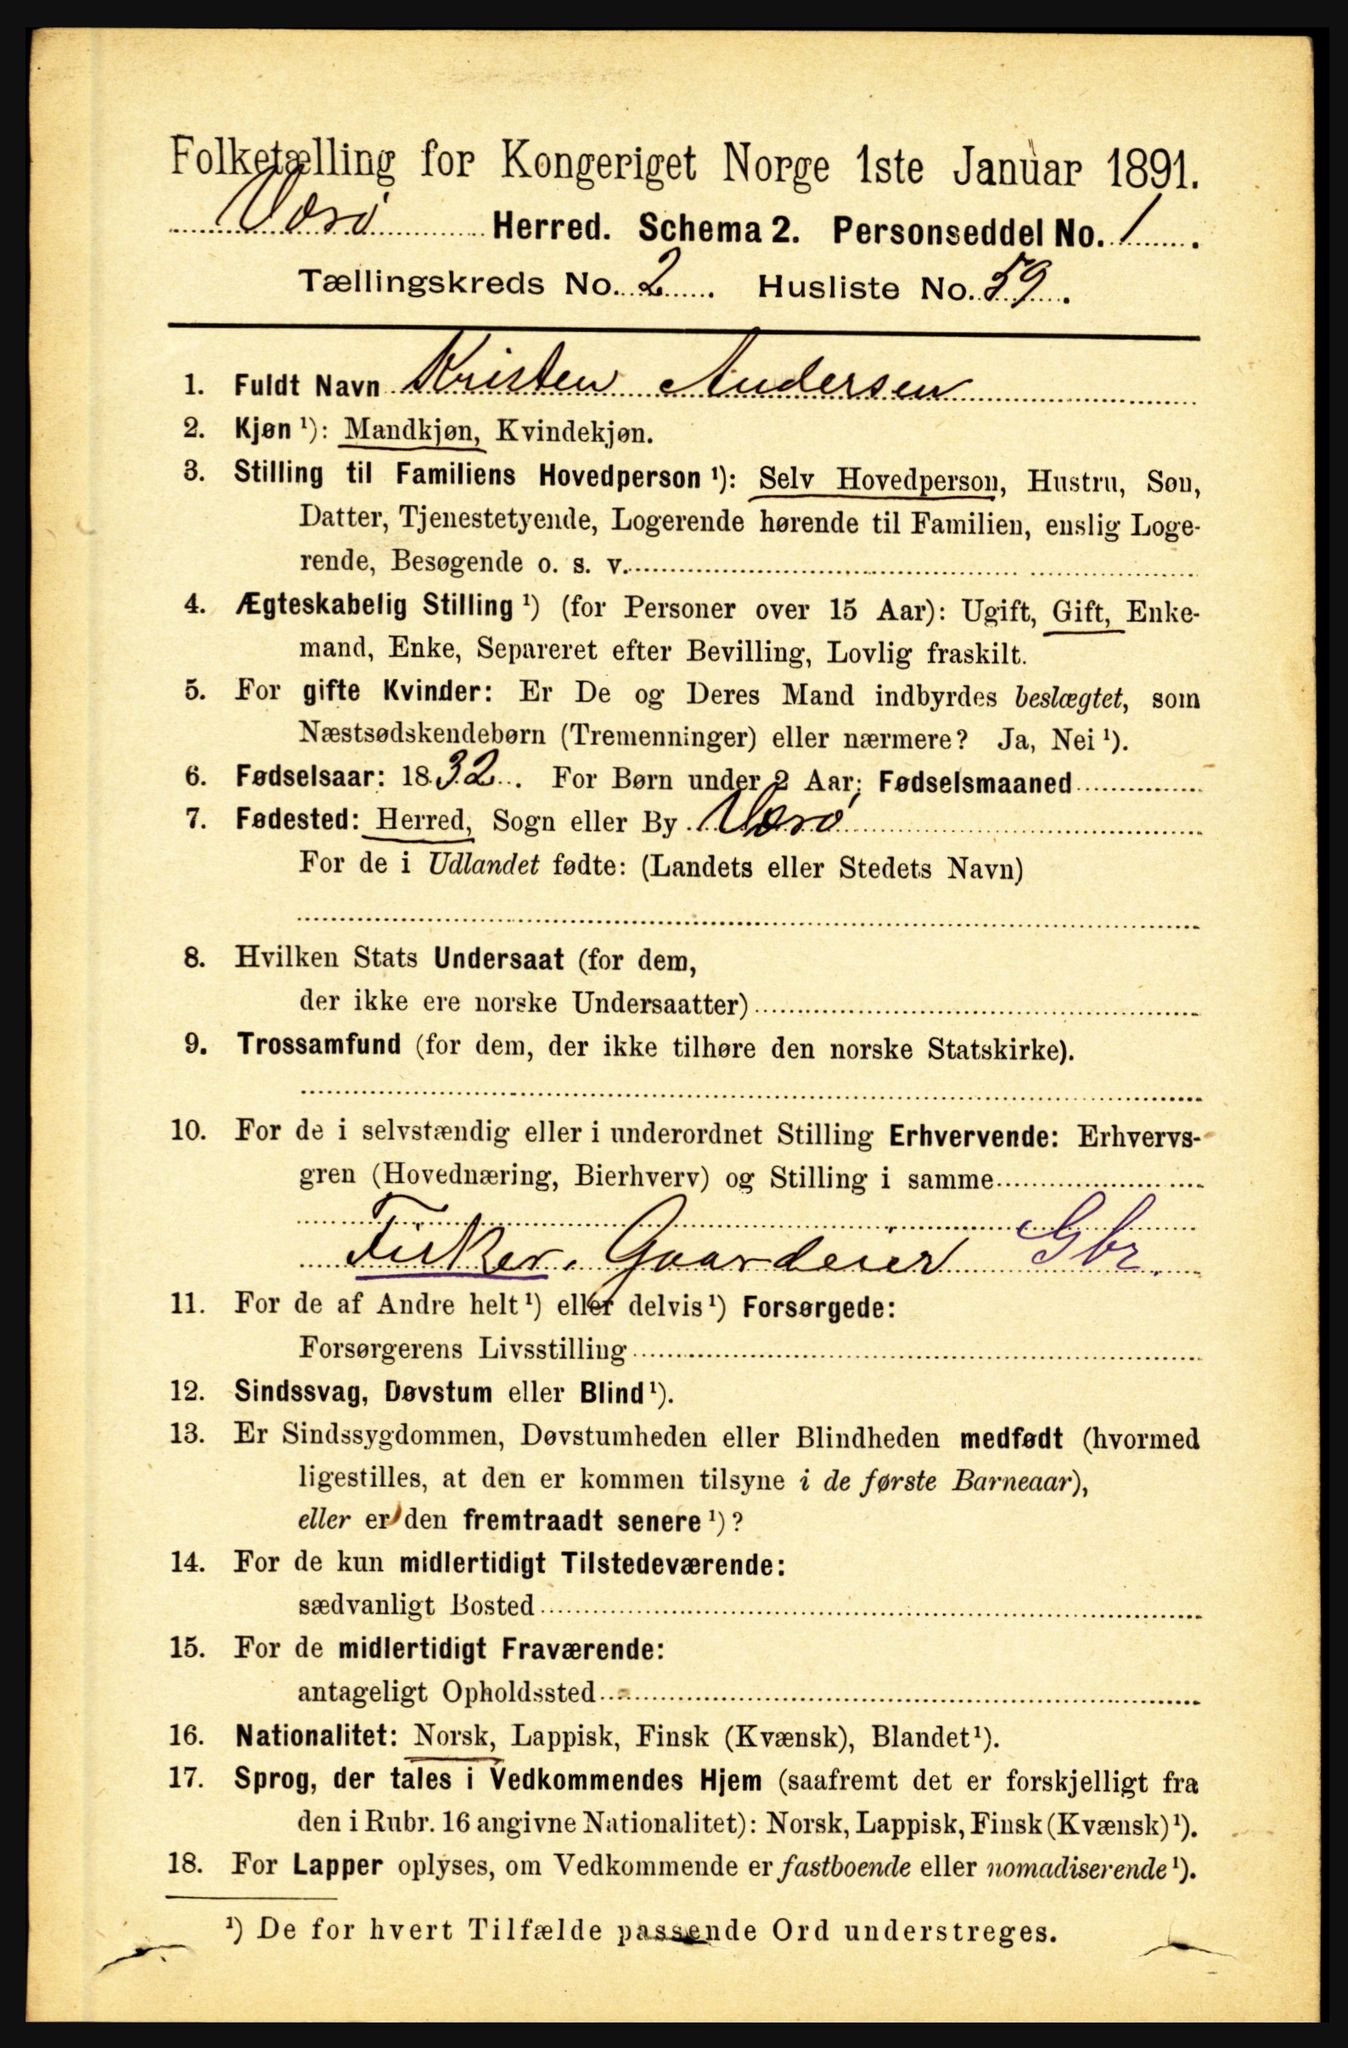 Folketælling for Kongeriget Norge 1ste Januar 1891.
Værø Herred. Schema 2. Personseddel No. 1.
Tællingskreds No. 2. Husliste No. 59.
1. Fuldt Navn Kristen Andersen
2. Kjøn ¹): Mandkjøn, Kvindekjøn.
3. Stilling til Familiens Hovedperson ¹): Selv Hovedperson, Hustru, Søn,
Datter, Tjenestetyende, Logerende hørende til Familien, enslig Loge-
rende, Besøgende o. s. v.
4. Ægteskabelig Stilling ¹) (for Personer over 15 Aar): Ugift, Gift, Enke-
mand, Enke, Separeret efter Bevilling, Lovlig fraskilt.
5. For gifte Kvinder: Er De og Deres Mand indbyrdes beslægtet, som
Næstsødskendebørn (Tremenninger) eller nærmere? Ja, Nei ¹).
6. Fødselsaar: 1832. For Børn under 2 Aar: Fødselsmaaned
7. Fødested: Herred, Sogn eller By Værø
For de i Udlandet fødte: (Landets eller Stedets Navn)
8. Hvilken Stats Undersaat (for dem,
der ikke ere norske Undersaatter)
9. Trossamfund (for dem, der ikke tilhøre den norske Statskirke).
10. For de i selvstændig eller i underordnet Stilling Erhvervende: Erhvervs-
gren (Hovednæring, Bierhverv) og Stilling i samme
Fisker. Gaardeier Gbr.
11. For de af Andre helt ¹) eller delvis ¹) Forsørgede:
Forsørgerens Livsstilling
12. Sindssvag, Døvstum eller Blind ¹).
13. Er Sindssygdommen, Døvstumheden eller Blindheden medfødt (hvormed
ligestilles, at den er kommen tilsyne i de første Barneaar),
eller er den fremtraadt senere ¹)?
14. For de kun midlertidigt Tilstedeværende:
sædvanligt Bosted
15. For de midlertidigt Fraværende:
antageligt Opholdssted
16. Nationalitet: Norsk, Lappisk, Finsk (Kvænsk), Blandet ¹).
17. Sprog, der tales i Vedkommendes Hjem (saafremt det er forskjelligt fra
den i Rubr. 16 angivne Nationalitet): Norsk, Lappisk, Finsk (Kvænsk) ¹).
18. For Lapper oplyses, om Vedkommende er fastboende eller nomadiserende ¹).
¹) De for hvert Tilfælde passende Ord understreges.